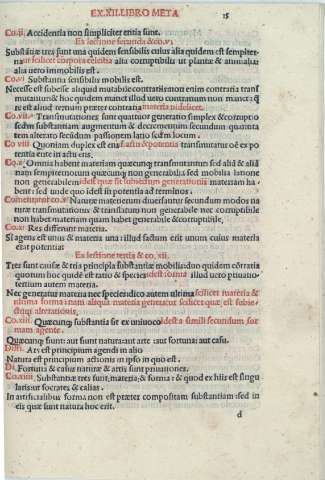 EX.XII.LIBRO META 15
Co.ii. Accidentia non simpliciter entia sunt.
Ex lectione secunda & co.v.
Substātiæ tres sunt una quidem sensibilis cuius alia quidem est sempiter-
na ut scilicet corpora cælestia alia corruptibilis ut plantæ & animalia:
alia uero immobilis est.
Co.vi Substantia sensibilis mobilis est.
Necesse est subesse aliquid mutabile contrariis: non enim contraria transf
mutantur: & hoc quidem manet illud uero contrarium non manet: q̄
re est aliud tertium præter contraria materia uidelicet.
Co.vii. Transmutationes sunt quattuor generatio simplex & corruptio
scdm substantiam augmentum & decrementum secundum quantita
tem alteratio secundum passionem latio scdm locum.
Co viii Quoniam duplex est ens s. actu & potentia transmutatur oē ex po
tentia ente in actu ens.
Co.x. Omnia habent materiam quæcunq; transmutantur sed aliā & aliā
nam sempiternorum quæcunq; non generabilia sed mobilia latione
non generabilem idest quæ sit subiectum generationis materiam ha
bent: sed unde quo idest in potentia ad terminos.
Comentatur co.x Naturæ materierum diuersantur secundum modos na
turæ transmutationū: & translatum non generabile nec corruptibile
non habet materiam quam habet generabile & corruptibile.
Co.xi. Res differunt materia.
Si agens est unus & materia una: illud factum erit unum cuius materia
erat potentia:
Ex lectione tertia & co, xii.
Tres sunt causæ & tria principia substantiæ mobilis: duo quidem cōtraria
quorum hoc quidē est ratio & species idest forma illud uero priuatio:
tertium autem materia.
Nec generatur materia nec species: dico autem ultima scilicet materia &
ultima forma: nam aliqua materia generatur scilicet quæ est subie-
ctum alterationis.
Co.xiii. Quæcunq; substantia fit ex uniuoco idest a simili secundum for
mam agente.
Quæcunq; sunt: aut sunt natura: aut arte: aut fortuna: aut casu.
Diffi. Ars est principium agendi in alio
Natura est principium actionis in ipso in quo est.
Di. Fortuna & casus naturæ & artis sunt priuationes.
Co.xiiii. Substantiæ tres sunt, materia; & forma: & quod ex hiis est singu
laris: ut socrates & calias.
In artificialibus forma non est præter compositam substantiam: sed in
eis quæ sunt natura hoc erit.
d